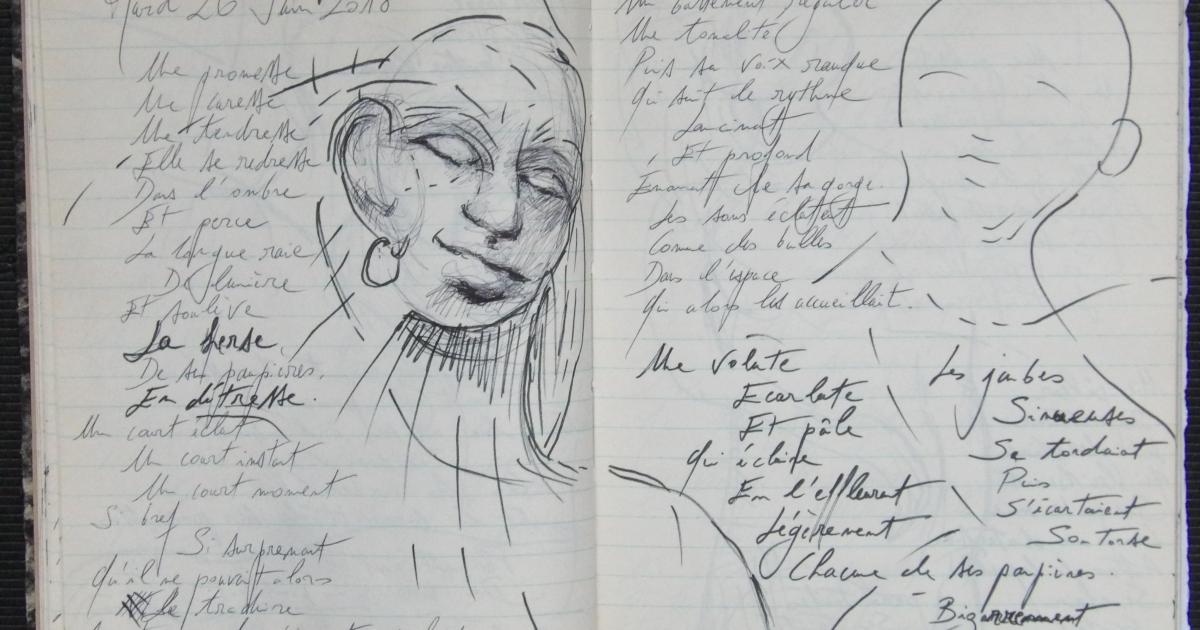 Mardi 26 Juin 2018
Une promesse
Une caresse
Une tendresse
Elle se redresse
Dans l'ombre
Et perce
La longue raie
De lumière
Et soulève
La herse
De ses paupières.
En détresse.
Un court éclat
Un court instant
Un court moment
Si bref
Si surprenant
Qu'il ne pouvait alors
le traduire
Un battement régulier
Une tonalité
Puis sa voix rauque
Qui suit le rythme
Lancinant
Et profond
Émanant de sa gorge.
Les sons éclataient
Comme des bulles
Dans l'espace
Qui alors les accueillait.
Une volute
Ecarlate
Et pâle
Qui éclaire
En l'effleurant
Légèrement
Chacune de ses paupières.
Bizarrement
Les jambes
Sinueuses
Se tordaient
Puis
S'écartaient
Son torse